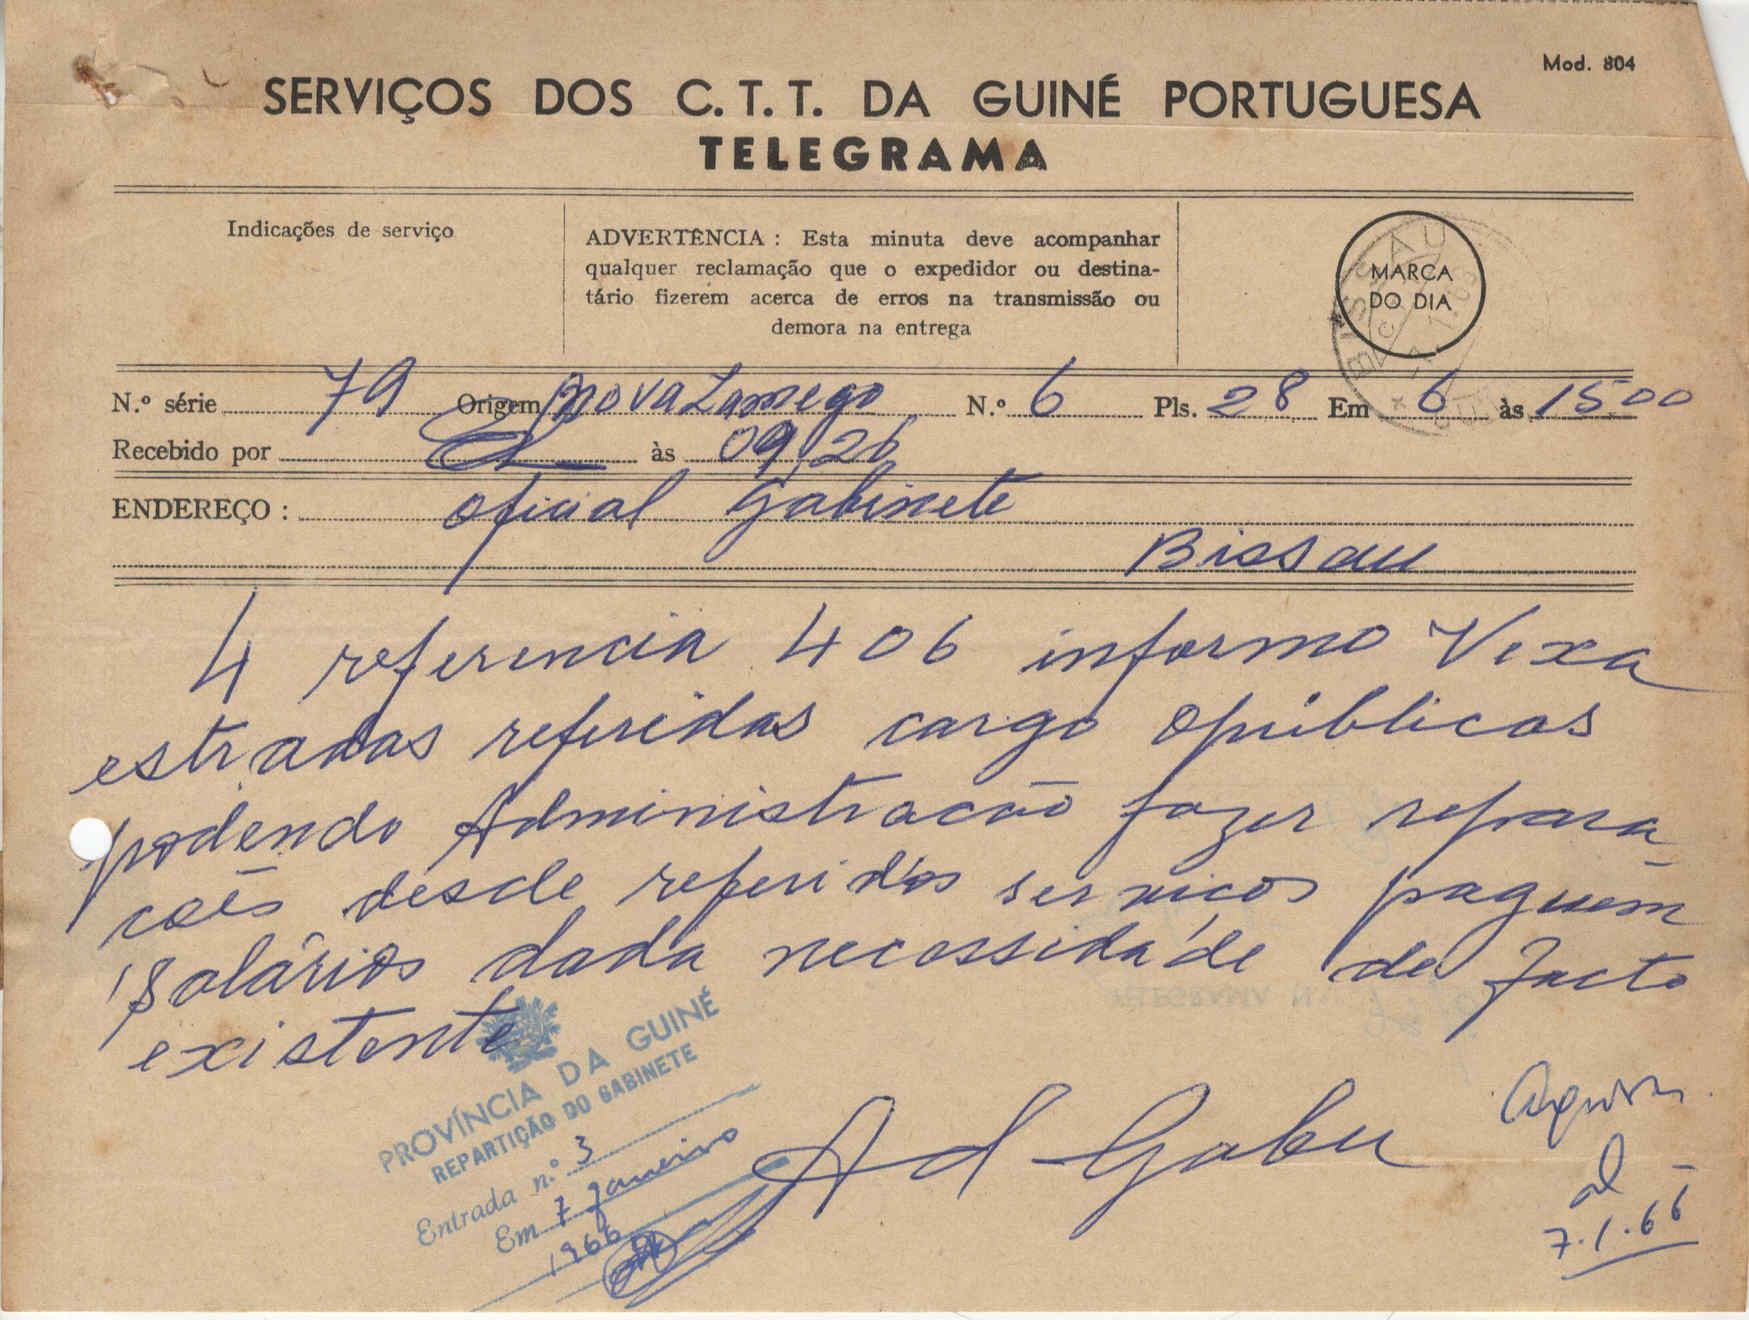 Mod. 804
SERVIÇOS DOS C. T. T. DA GUINÉ PORTUGUESA
TELEGRAMA
Indicações de serviço
ADVERTÊNCIA : Esta minuta deve acompanhar
qualquer reclamação que o expedidor ou destina-
tário fizerem acerca de erros na transmissão ou
demora na entrega
MARCA
DO DIA
BISSAU
N.º série 79 Origem Nova Lamego N.º 6 Pls. 28 Em 6 às 1500
Recebido por às 09,26
ENDEREÇO : Oficial Gabinete
Bissau
4 referencia 406 informo Vexa
estradas referidas cargo opúblicas
podendo Administracão fazer repara
coẽs desde referidos servicos paguem
salários dada necessidade de facto
existente
PROVÍNCIA DA GUINÉ
REPARTIÇÃO DO GABINETE
Entrada n.º 3
Em 7 Janeiro
1966
Ad Gabu
7.1.66